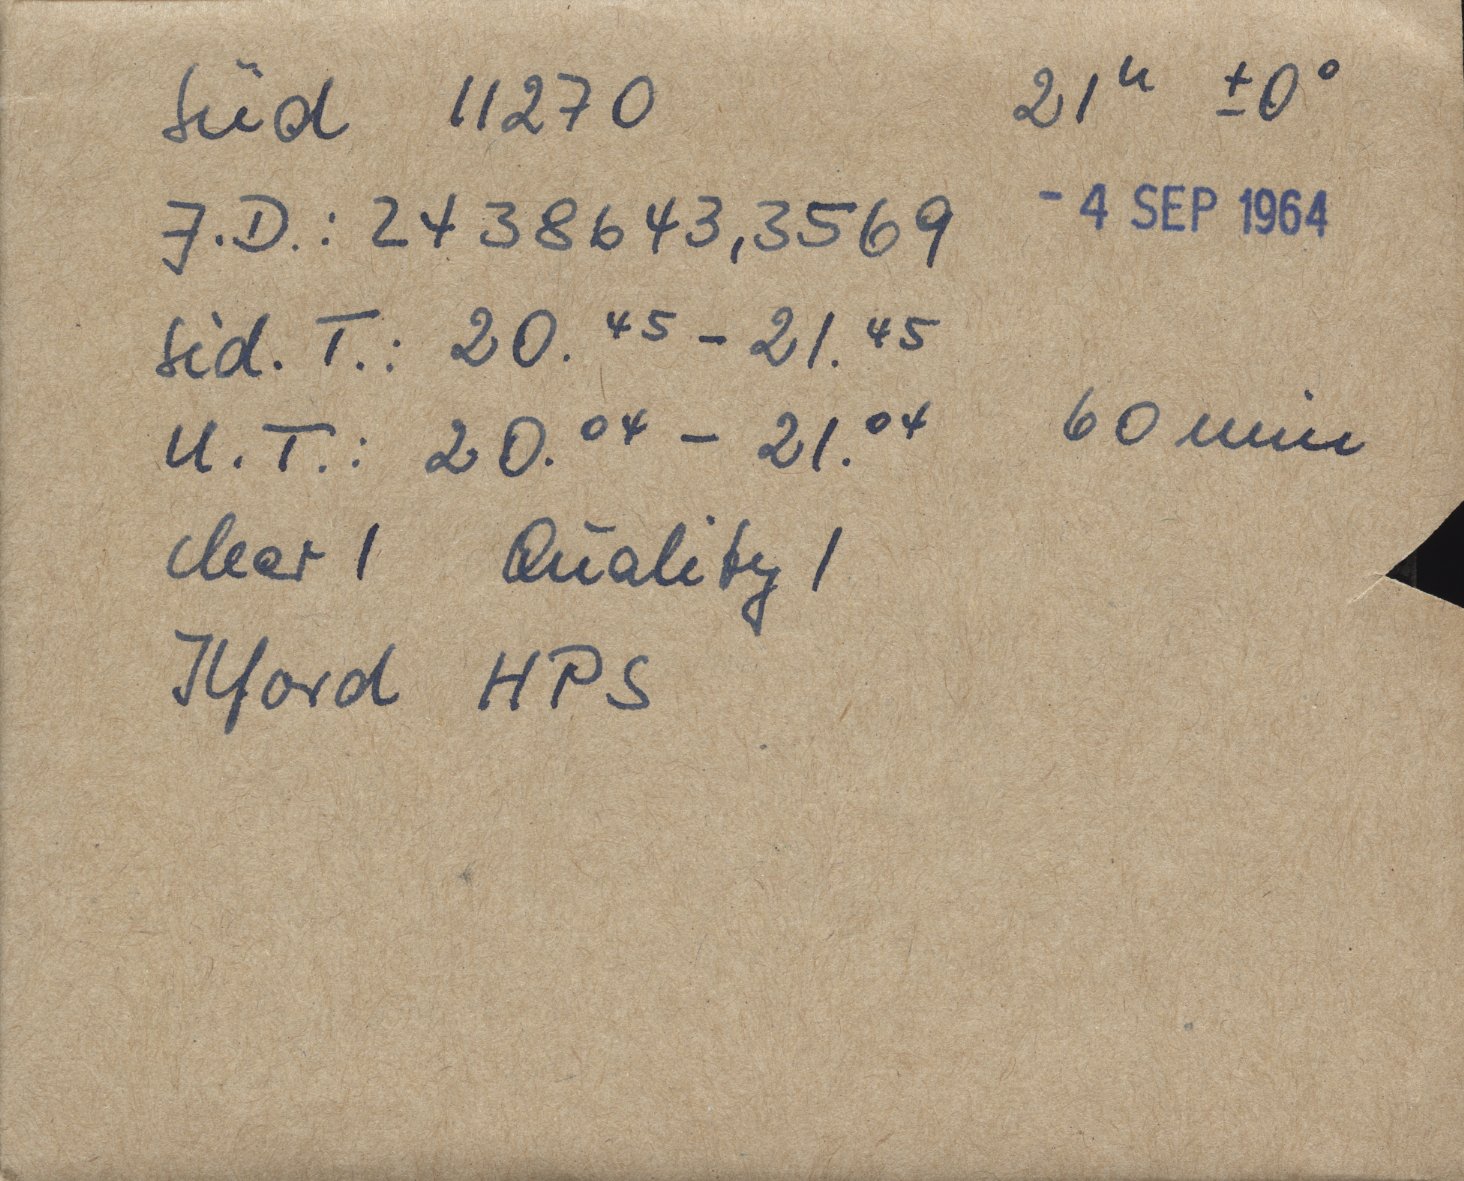 Süd 11270 21ʰ ±0°
J.D.: 2438643,3569 - 4 SEP 1964
Sid. T.: 20.⁴⁵ – 21.⁴⁵
U.T.: 20.⁰⁴ – 21.⁰⁴ 60 min
clear 1 Quality 1
Ilford HPS